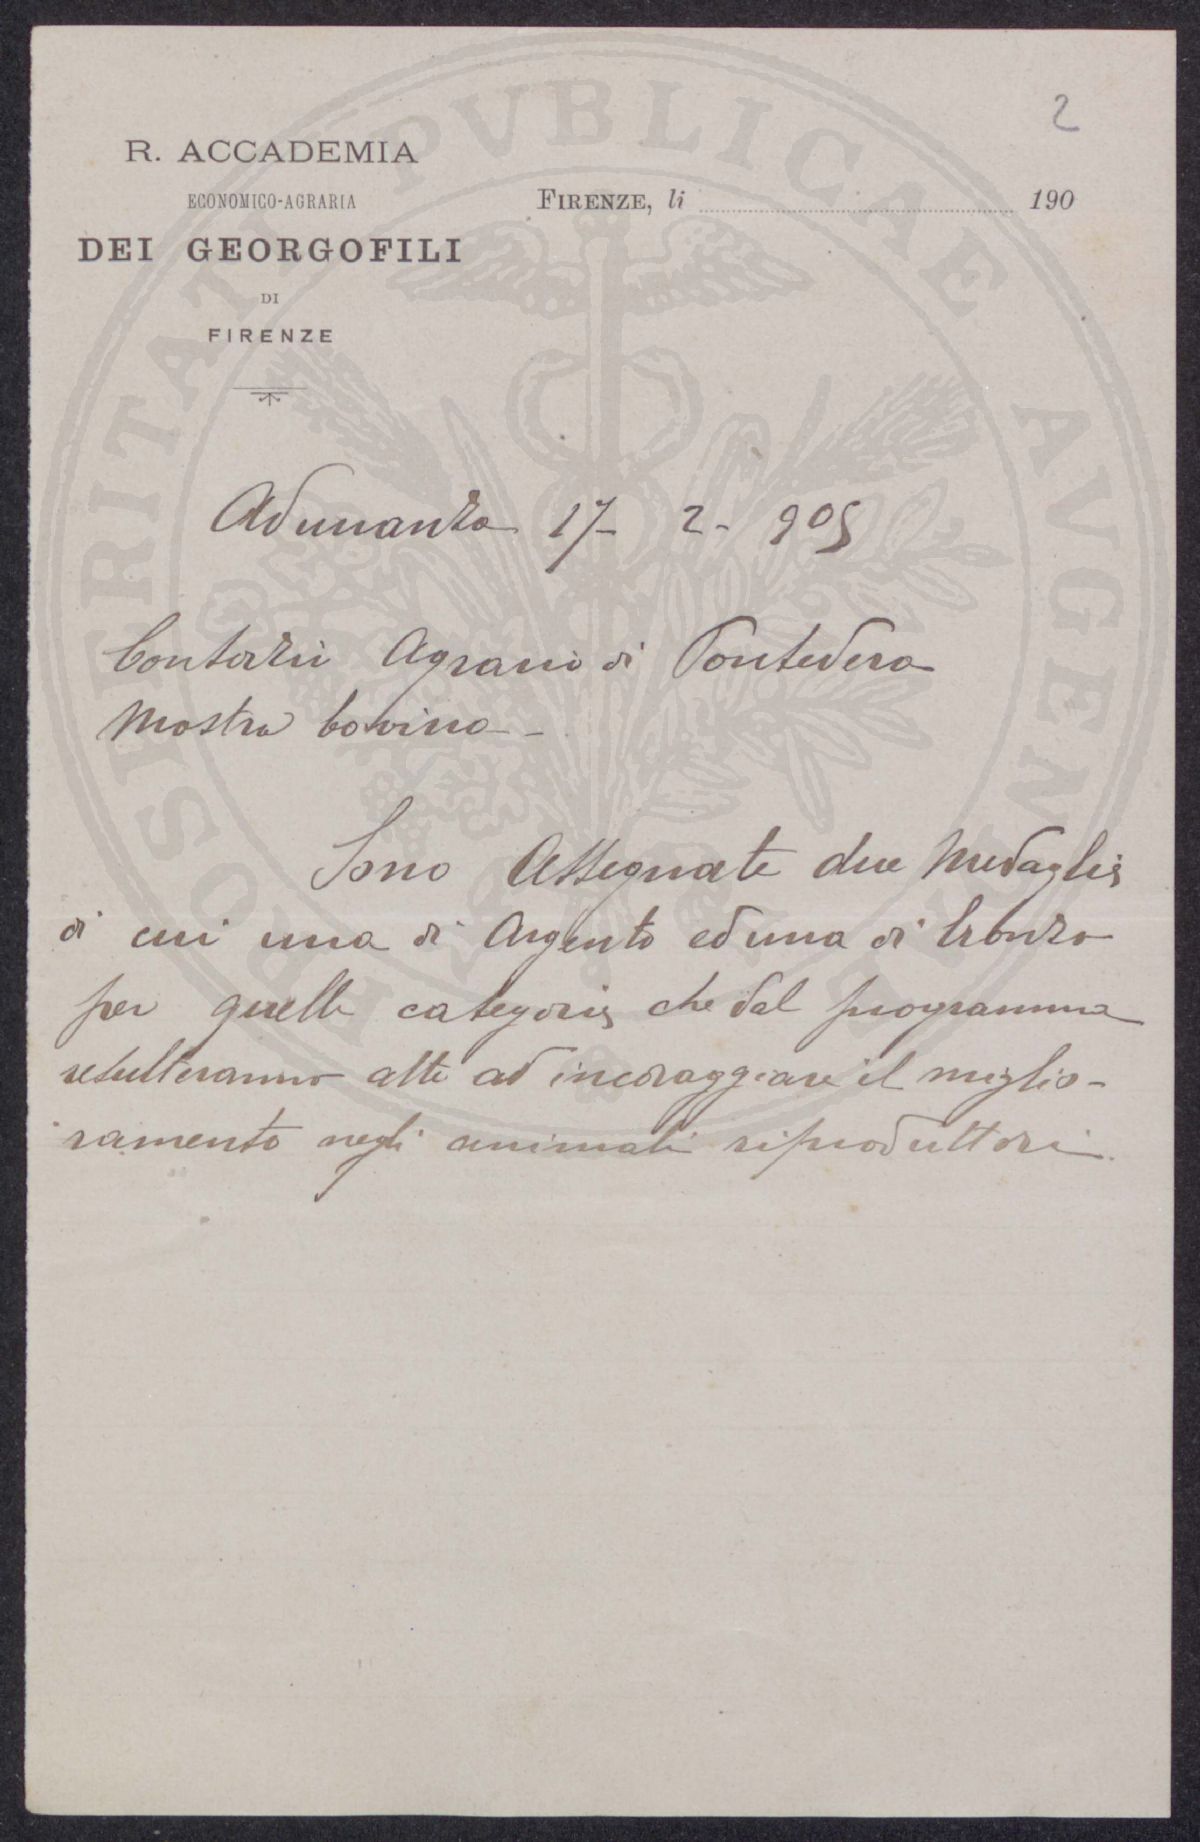 2
R. ACCADEMIA
ECONOMICO-AGRARIA
DEI GEORGOFILI
DI
FIRENZE
FIRENZE, li 190
Adunanza 17- 2- 905
Agrario di Pontedera
Mostra bovina -
Sono Assegnate due Medaglie
di cui una di Argento ed una di bronzo
per quelle categorie che dal programma
resulteranno atte ad incoraggiare il miglio-
ramento negli animali riproduttori.
PROSPERITATI PVBLICAE AVGENDAE